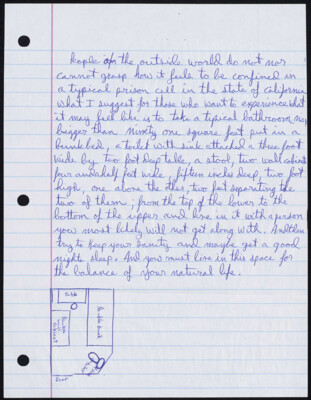 People on the outside world do not nor
cannot grasp how it feels to be confined in
a typical prison cell in the state of california
what I suggest for those who want to experience what
it may feel like is to take a typical bathroom, no
bigger than ninty one square foot put in a
bunk bed, a toilet with sink attached a three foot
wide by two foot deep table, a stool, two wall cabinets
four and a half foot wide, fifteen inches deep, two foot
high, one above the other, two feet separating the
two of them; from the top of the lower to the
bottom of the upper and live in it with a person
you most likely will not get along with. And then
try to keep your sanity and maybe get a good
nights sleep. And you must live in this space for
the balance of your natural life.
Table
Double Bunk
Door